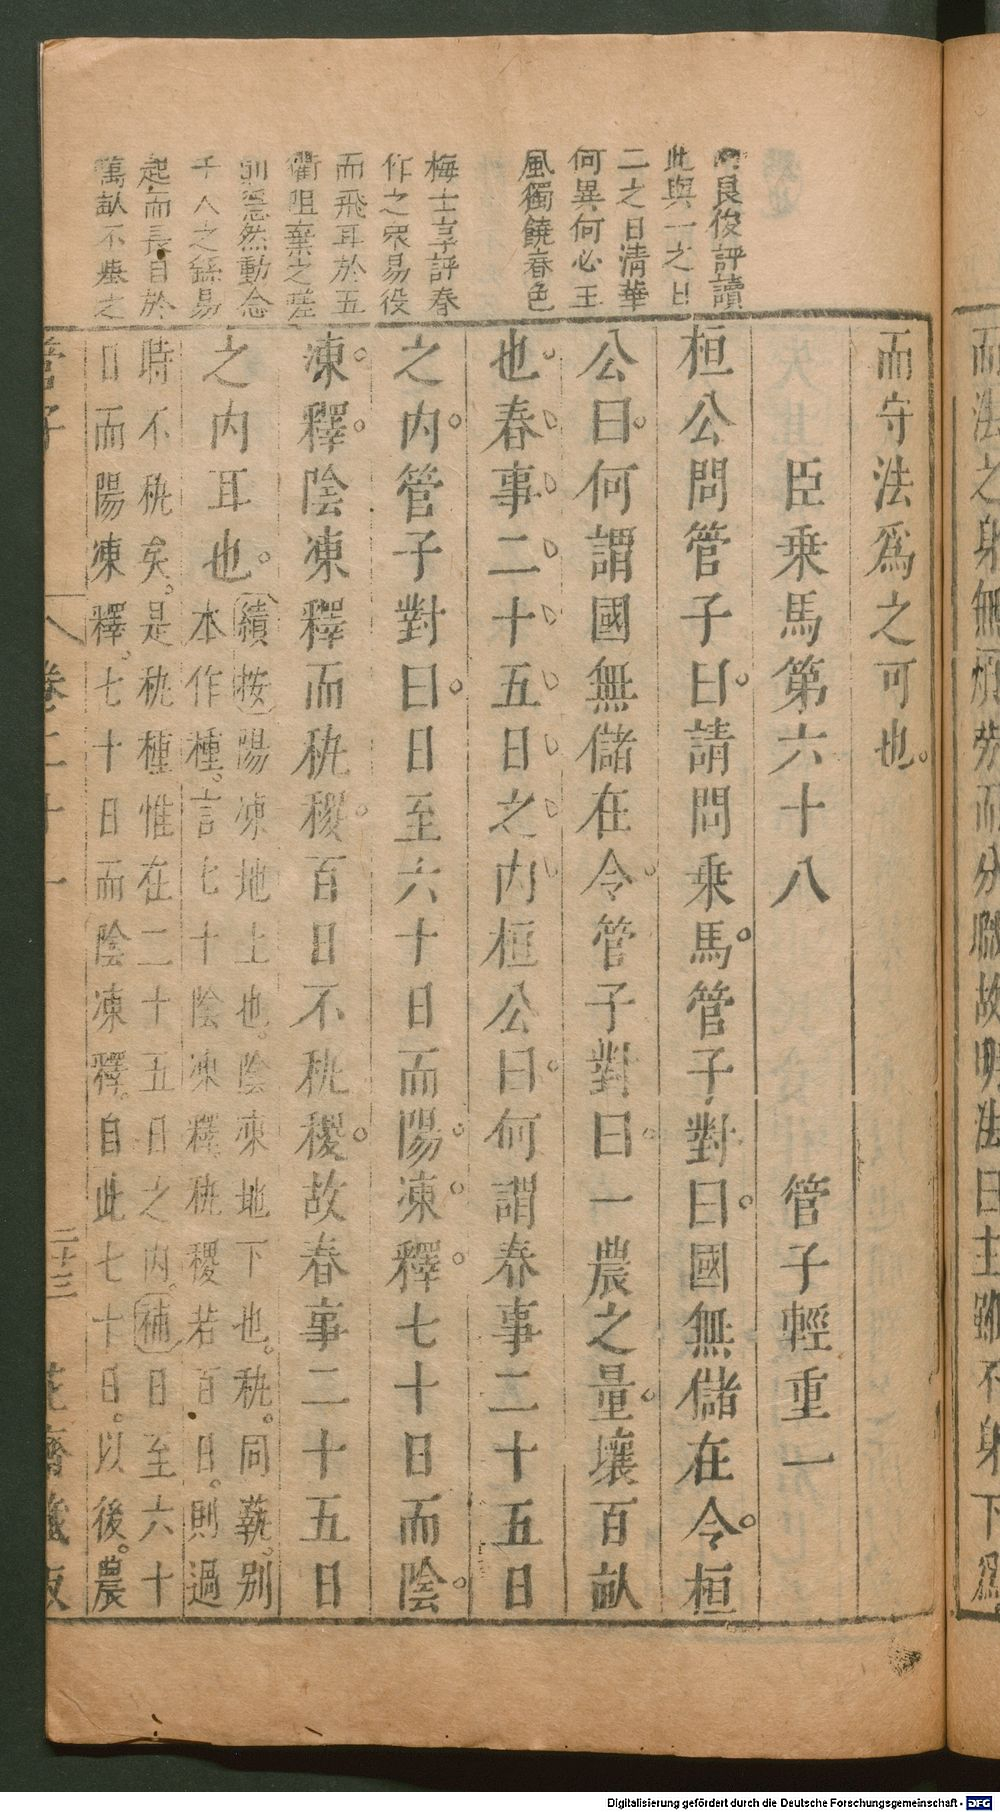 艮俊評讀
此與一之日
二之日清華
何異何必王
風獨饒春色
梅士享評春
作之衆易役
而飛耳於五
衢阻棄之
則隱然動念
千人之繇易
起而長自於
萬畝不之
而守法爲之可也
臣乗馬第六十八 管子輕重一
桓公問管子曰請問乗馬管子對曰國無儲在令桓
公曰何謂國無儲在令管子對曰一農之量壤百畝
也春事二十五日之内桓公曰何謂春事二十五日
之内管子對曰日至六十日而陽凍釋七十日而陰
凍釋陰凍釋而秇稷百日不秇稷故春事二十五日
之内耳也
續按陽凍地上也陰凍地下也秇同蓺别
本作種言七十陰凍釋秇稷若百日則過
時不秇矣是秇種惟在二十五日之内補日至六十
日而陽凍釋七十日而陰凍釋自此七十日以後農
管子 卷二十一 二十三 花齋藏板
而法之射無廢勞而分職故明法曰主雖不射下爲
Digitalisierung gefördert durch die Deutsche Forschungsgemeinschaft - DFG